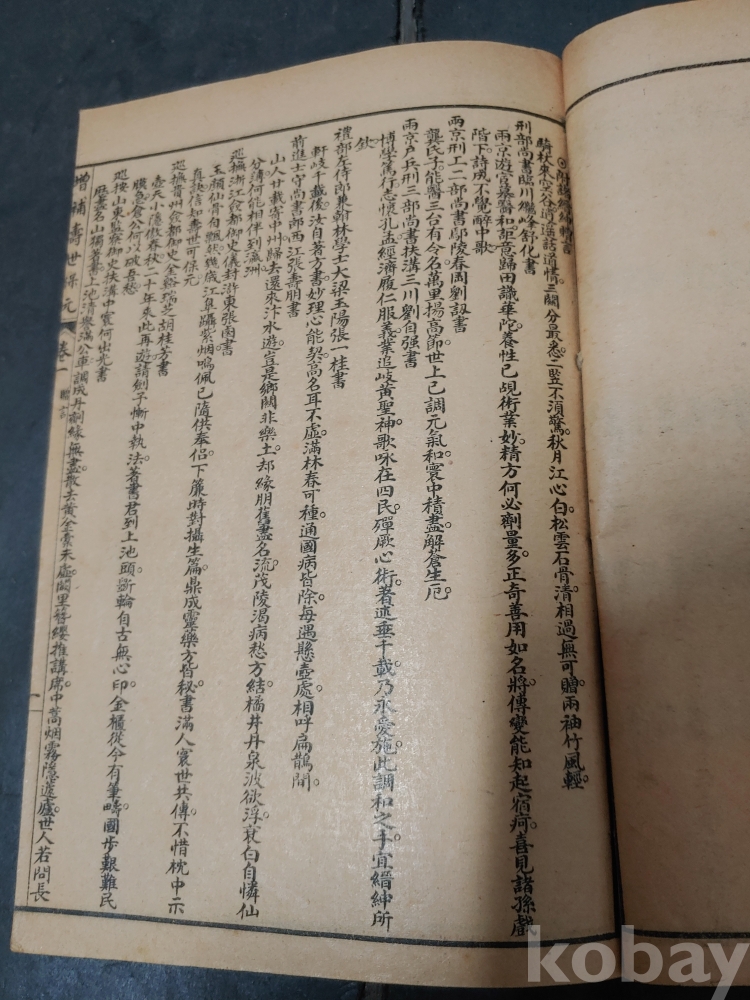 騎杖來空谷逍遥話道情三關分最悉二豎不須驚秋月江心白松雲石骨清相過無可贈兩袖竹風輕
刑部尚書臨川繼峰舒化書
兩京遊宦慕醫和拒意歸田識華陀養性已覘術業妙精方何必劑量多正奇善用如名將傳變能知起宿疴喜見諸孫戲
階下詩成不覺醉中歌
兩京刑工二部尚書鄢陵春岡劉訒書
龔氏子能醫三台有令名萬里揚高節世上已調元氣和寰中積盡解蒼生厄
兩京戶兵刑三部尚書扶溝三川劉自强書
博學篤行志懷孔孟經濟履仁服義業追岐黃聖神歌咏在四民殫厥心術著述垂千載乃永愛施此調和之手宜縉紳所
欽
禮部左侍郎兼翰林學士大梁玉陽張一桂書
軒岐千載後汝自著方書妙理心能契高名耳不虛滿林春可種通國病皆除每遇懸壺處相呼扁鵲閭
前進士守尚書郎西江張壽朋書
山人廿載寄中州歸去還來汴水遊豈是鄉關非樂土却緣朋舊盡名流茂陵渴病愁方結橘井丹泉波欲浮衰白自憐仙
分薄何能相伴到瀛洲
巡撫浙江僉都御史儀封滸東張鹵書
玉顏仙骨自飄然幾歲江阜躡紫烟鳴佩已隨供奉侣下簾時對攝生篇鼎成靈藥方皆秘書滿人寰世共傳不惜枕中示
真訣信知壽世可保元
巡撫貴州僉都御史金谿瑞芝胡桂芳書
壺天小隱傲春秋二十年來此再遊請劍子慚中執法著書君到上池頭斷輪自古無心印金櫃從今有筆疇國步艱難民
膜急倉公何以砭吾愁
巡按山東監察御史扶溝中寰何出光書
麻蕙名山獨著書上池清譽滿公車調成丹劑緣無盡散去黃金橐未虛閭里簪纓推講席中蒿烟霧隱蓬廬世人若問長
增補壽世保元 卷一
一
kobay